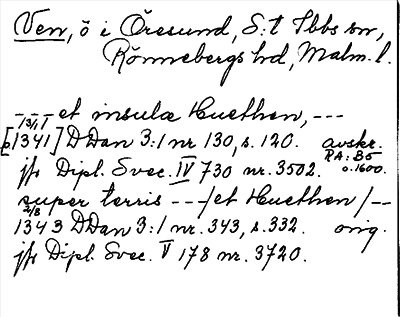 Ven, ö i Öresund, S:t Ibbs sn,
Rönnebergs hd, Malm. l.
--- et insula Huethen, ---
[1341] 13/1 DDan 3:1 nr 130, s. 120. avskr. RA: B5 o. 1600.
jfr Dipl. Svec. IV 730 nr. 3502.
super terris --- /et Huethen/ --
1343 2/8 DDan 3:1 nr. 343, s. 332. orig.
jfr Dipl. Svec. V 178 nr. 3720.